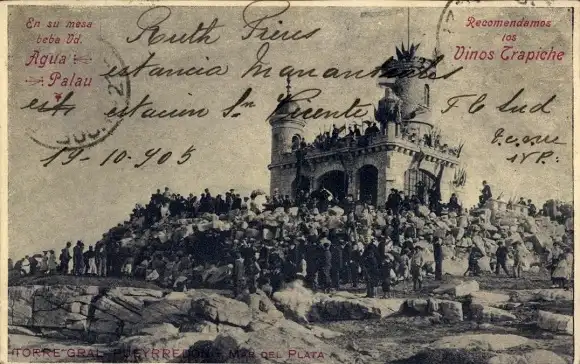 En su mesa
beba Vd.
Agua
Palau
Recomendamos
los
Vinos Trapiche
Ruth Freres
estancia Manantiales
est. estacion Sn Vicente F C Sud
19-10-905
TORRE GRAL. PUEYRREDON - MAR DEL PLATA